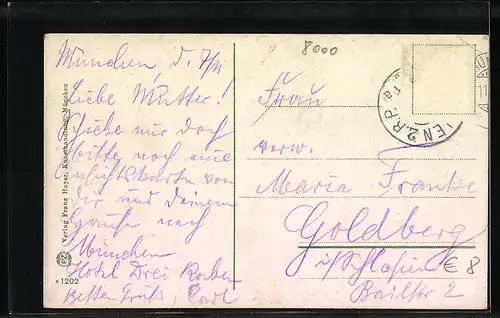 München d. 7/11
Liebe Mutter!
Schicke mir doch
bitte noch eine
Ansichtskarte von
Dir und Deinem
Hause nach
München
Hotel Drei Raben
Besten Gruß, Carl
Verlag Franz Hayer, Kunsthandlung, München
1202
8000
Frau
verw.
Maria Franke
Goldberg
i/Schlesien
Bailstr 2
€ 8